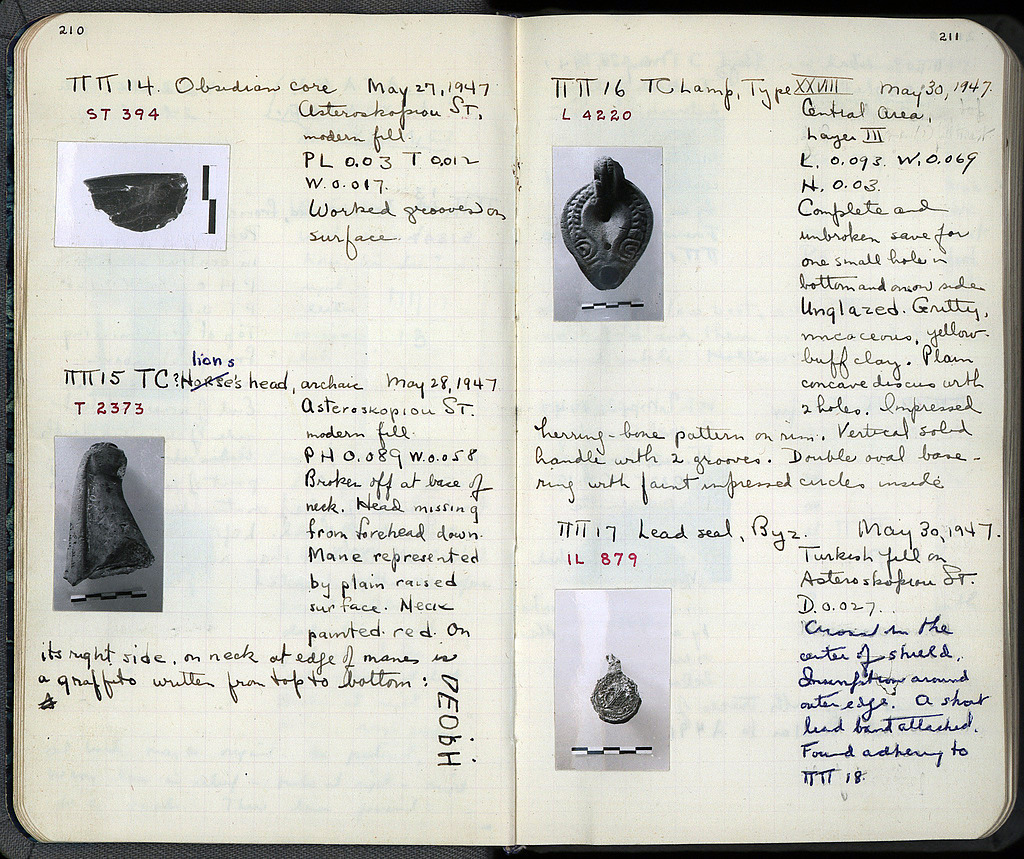 210
ΠΠ 14. Obsidian core May 27, 1947
ST 394
Asteroskopiou ST.
modern fill.
PL 0.03 T 0.012
W. 0.017.
Worked grooves on
surface.
lions
ΠΠ 15 TC ? Horse's head, archaic May 28, 1947
T 2373
Asteroskopiou ST.
modern fill.
PH 0.089 W. 0.058
Broken off at base of
neck. Head missing
from forehead down.
Mane represented
by plain raised
surface. Neck
painted red. On
its right side, on neck at edge of mane is
a graffito written from top to bottom:
211
ΠΠ 16 TC Lamp, Type XXVIII May 30, 1947.
L 4220
Central Area,
Layer III
L. 0.093. W. 0.069
H. 0.03.
Complete and
unbroken save for
one small hole in
bottom and on side
Unglazed. Gritty,
micaceous, yellow-
buff clay. Plain
concave discus with
2 holes. Impressed
herring-bone pattern on rim. Vertical solid
handle with 2 grooves. Double oval base-
ring with faint impressed circles inside
ΠΠ 17 Lead seal, Byz. May 30, 1947.
IL 879
Turkish fill on
Asteroskopiou ST.
D. 0.027.
Cross in the
center of shield.
Inscription around
outer edge. A short
lead band attached.
Found adhering to
ΠΠ 18.